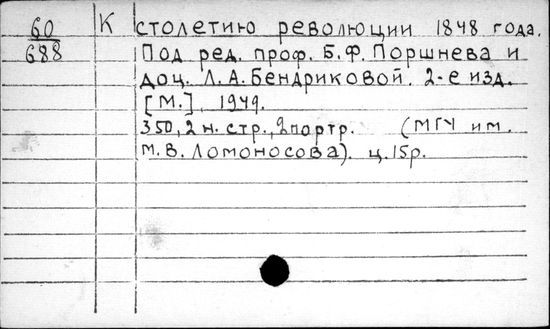 60
688
К столетию революции 1848 года.
Под ред. проф. Б.Ф. Поршнева и
доц. Л.А. Бендриковой. 2-е изд.
[М.], 1949.
350, 2 н. стр., 2 портр. (МГУ им.
М.В. Ломоносова). ц. 15 р.